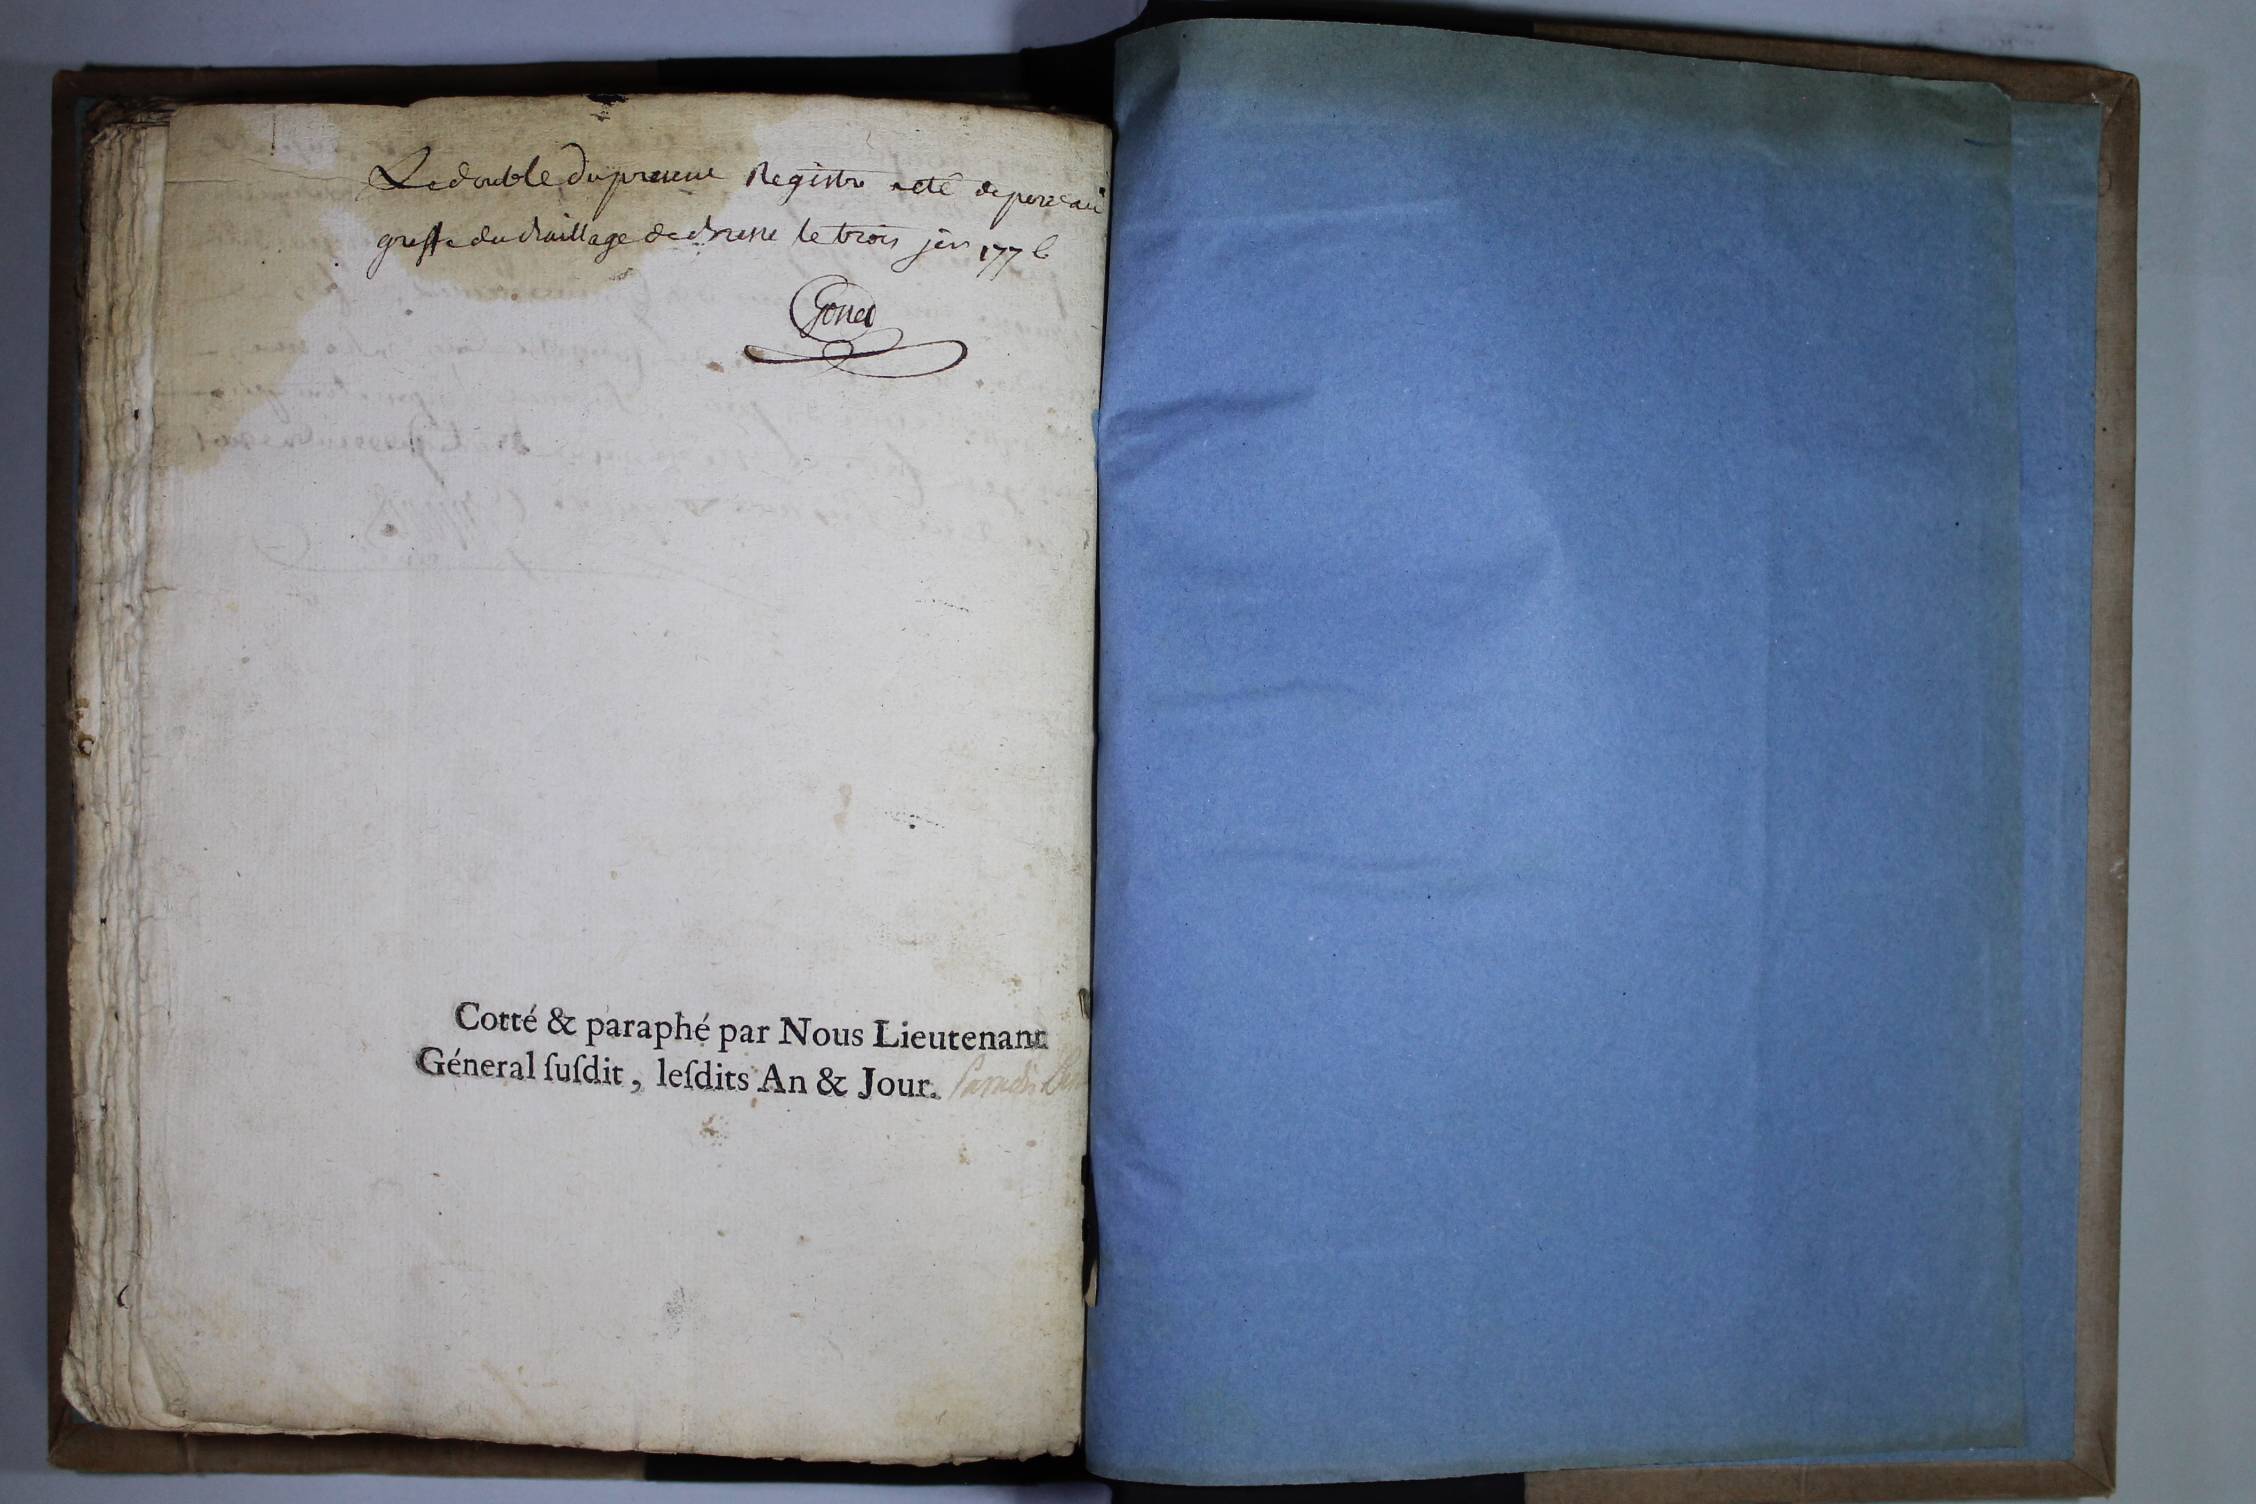 Le double du present Registre a eté deposé au
greffe du Bailliage de Bresse le trois jer 1776
Gonet
Cotté & paraphé par Nous Lieutenant
Géneral ſuſdit, leſdits An & Jour.